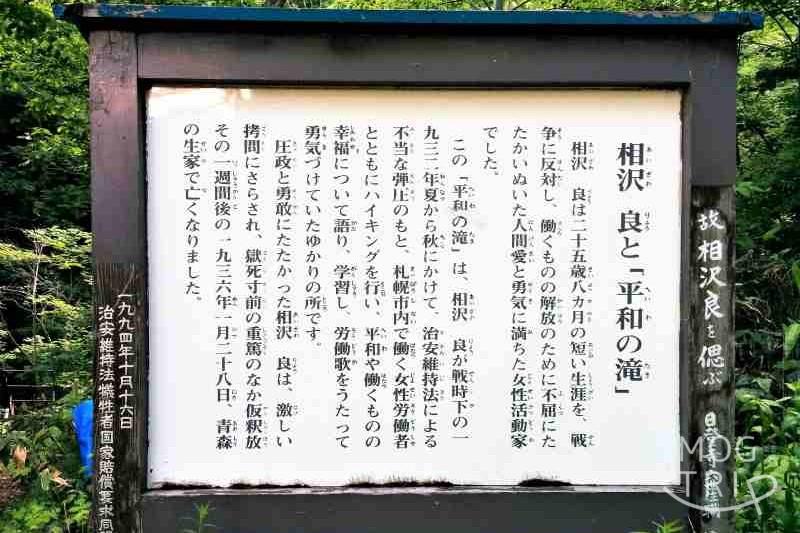 相沢 良と「平和の滝」
相沢 良は二十五歳八カ月の短い生涯を、戦
争に反対し、働くものの解放のために不屈にた
たかいぬいた人間愛と勇気に満ちた女性活動家
でした。
この「平和の滝」は、相沢 良が戦時下の一
九三二年夏から秋にかけて、治安維持法による
不当な弾圧のもと、札幌市内で働く女性労働者
とともにハイキングを行い、平和や働くものの
幸福について語り、学習し、労働歌をうたって
勇気づけていたゆかりの所です。
圧政と勇敢にたたかった相沢 良は、激しい
拷問にさらされ、獄死寸前の重篤のなか仮釈放
その一週間後の一九三六年一月二十八日、青森
の生家で亡くなりました。
故相沢良を偲ぶ
一九九四年十月十六日
治安維持法犠牲者国家賠償要求同
MOG
TRIP